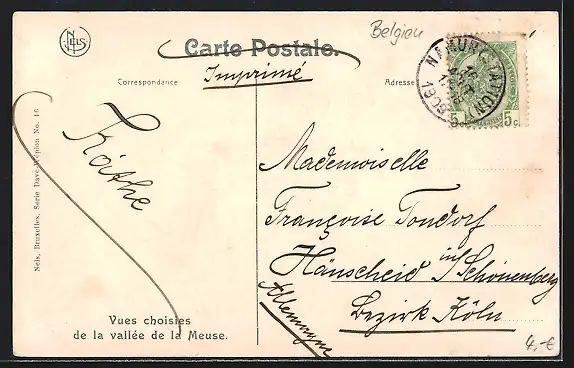 NELS
Belgien
Carte Postale.
Imprimé
Correspondance
Adresse
NAMUR (STATION)
1909
5 5c
Käthe
Mademoiselle
Françoise Tondorf
Hänscheid in/Schönenberg
Bezirk Köln
Allemagne
Nels, Bruxelles, Serie Dave-Wépion No. 16
Vues choisies
de la vallée de la Meuse.
4,-€